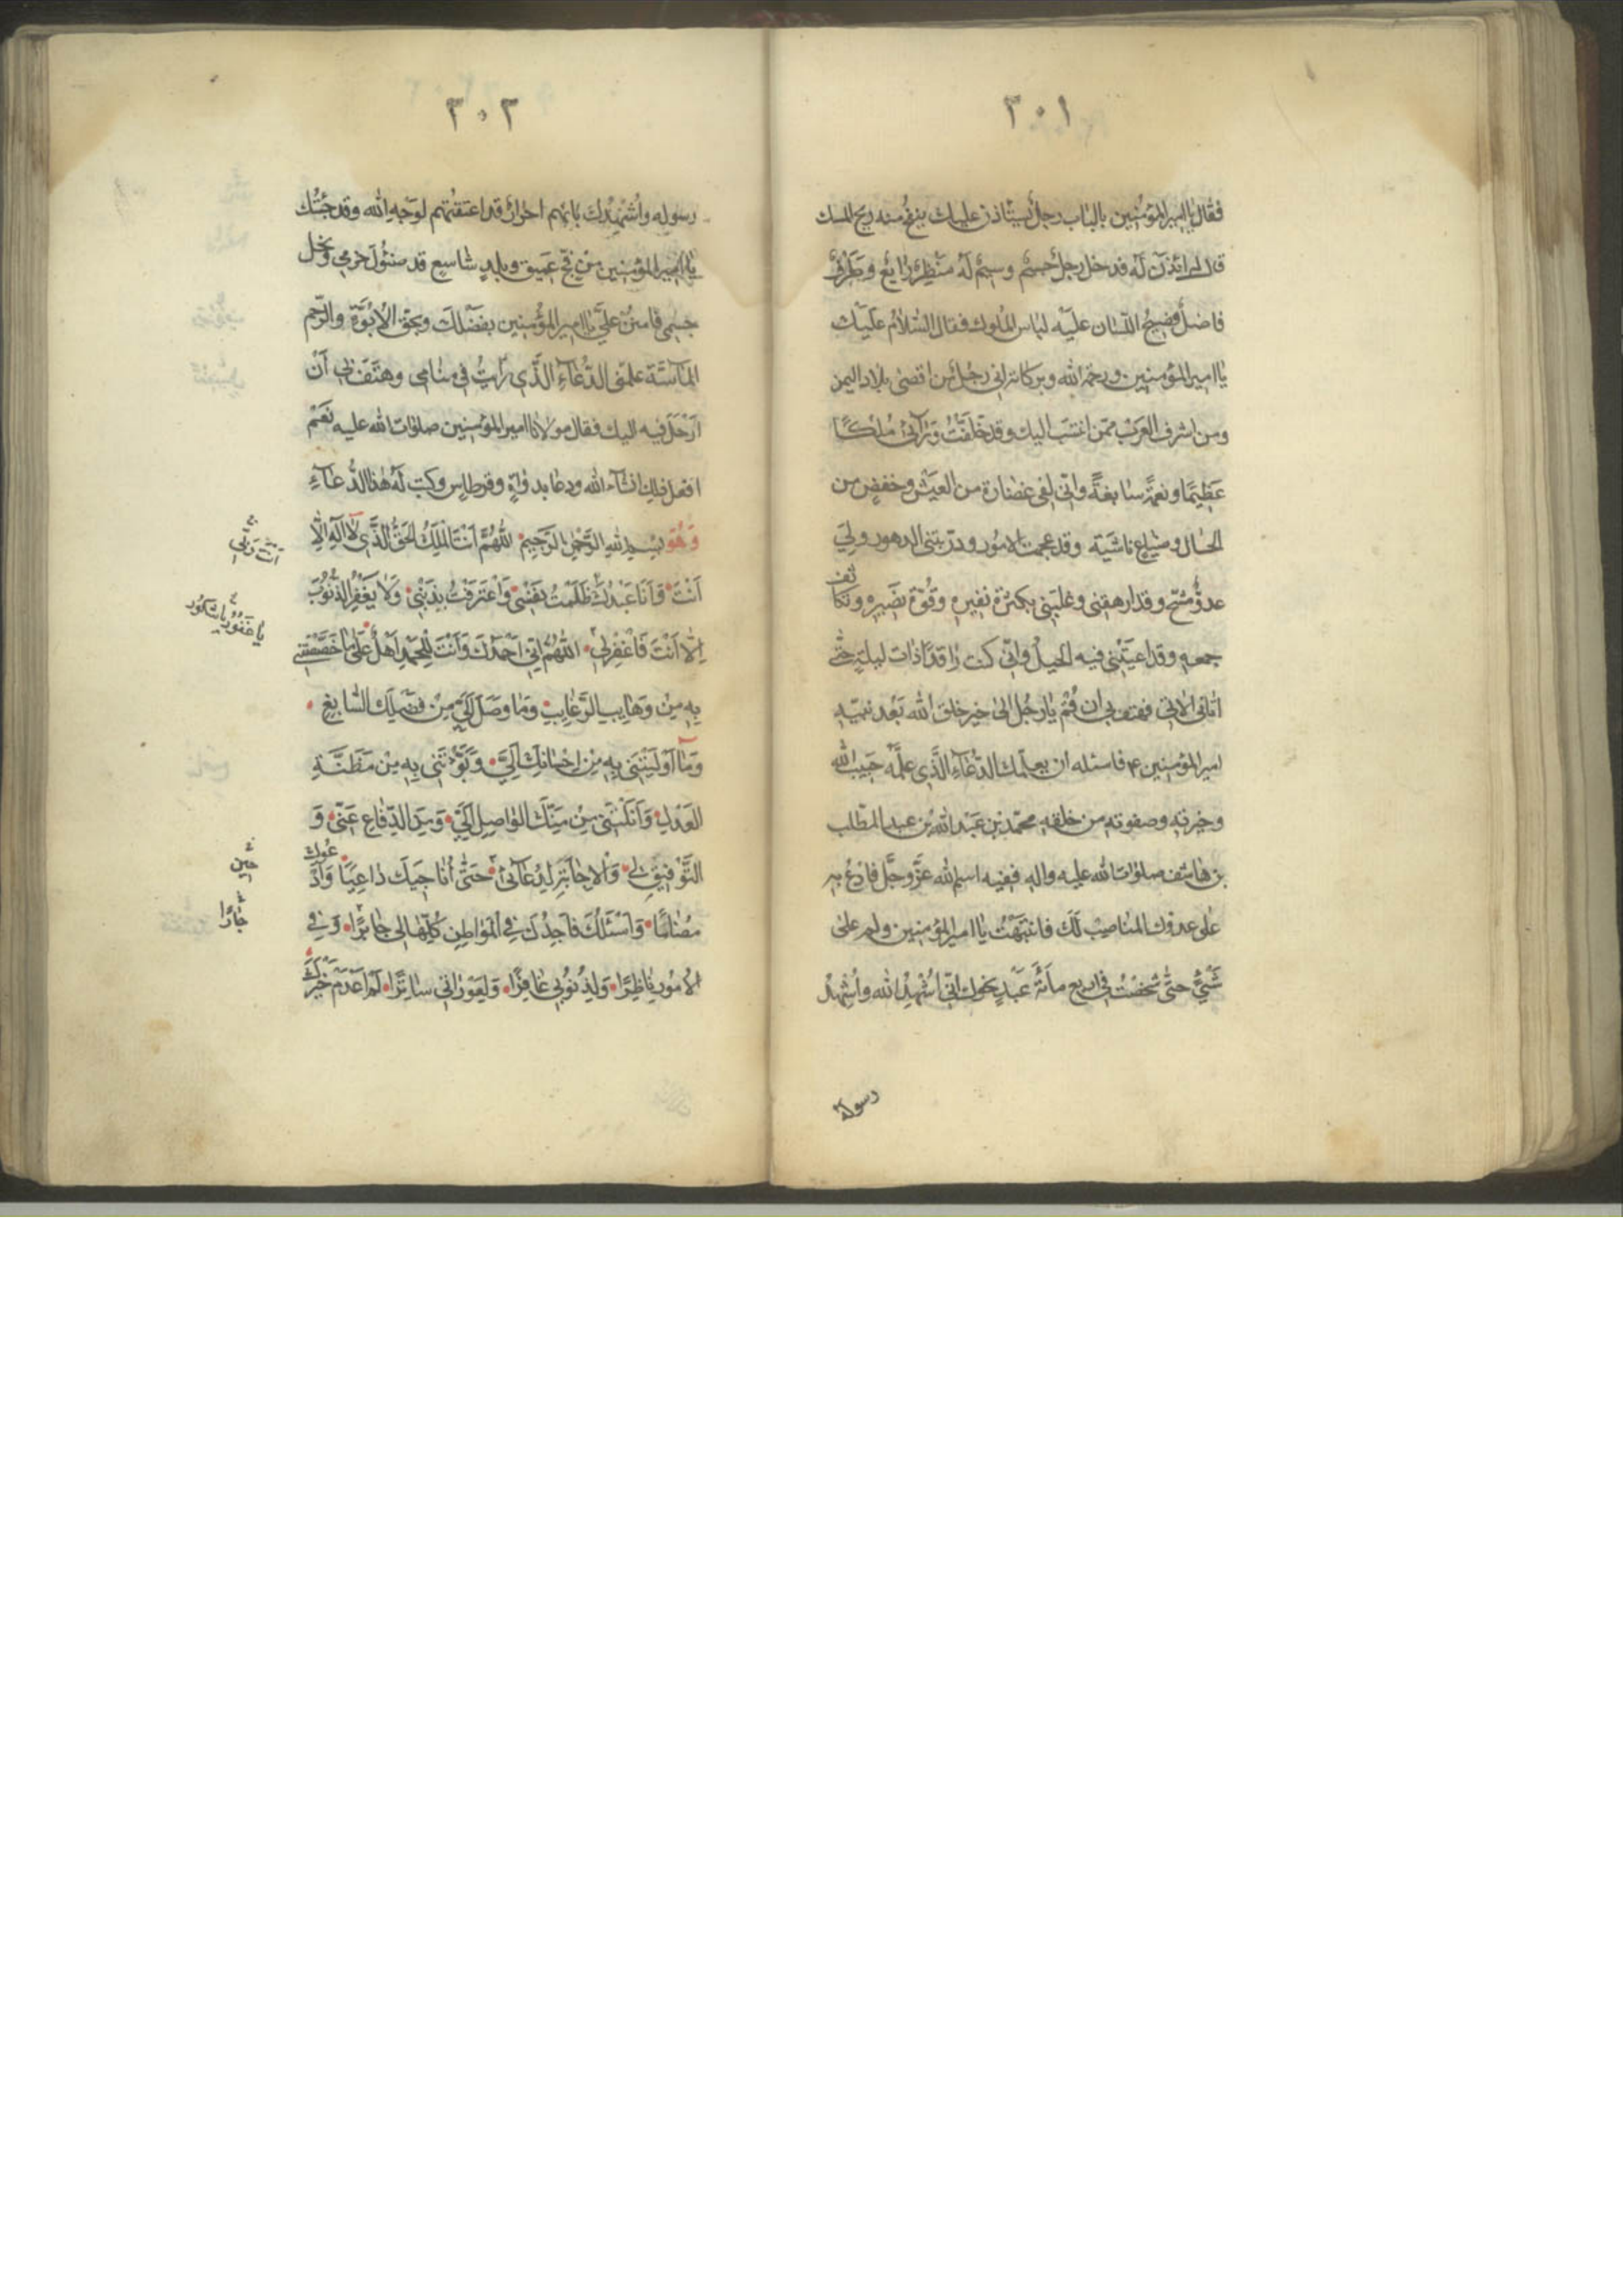 ٣٠١
فقال يا امير المؤمنين بالباب رجل يستاذن عليك ينفح منه ريح المسك
قال له ائذن له فدخل رجل جسيم وسيم له منظر رايع وطرف
فاضل فصيح اللسان عليه لباس الملوك فقال السلام عليك
يا امير المؤمنين ورحمة الله وبركاته اني رجل من اقصى بلاد اليمن
ومن اشرف العرب ممن انتسب اليك وقد خلفت ورائي ملكا
عظيما ونعمة سابغة واني لفي غضارة من العيش وخفض من
الحال وضياع ناشية وقد عجمت الامور ودربتني الدهور ولي
عدو مشح وقد ارهقني وغلبني بكثرة نفيره وقوة نصيره وتكاثف
جمعه وقد اعيتني فيه الحيل واني كنت راقدا ذات ليلة حتى
اتاني الاتي فهتف بي ان قم يا رجل الى خير خلق الله بعد نبيه
امير المؤمنين ع فاسئله ان يعلمك الدعاء الذي علمه حبيب الله
وخيرته وصفوته من خلقه محمد بن عبد الله بن عبد المطلب
بن هاشم صلوات الله عليه واله ففيه اسم الله عز وجل فادع به
على عدوك المناصب لك فانتبهت يا امير المؤمنين ولم على
شئ حتى شخصت في اربع مائة عبد نحوك اني اشهد الله واشهد
رسوله
٣٠٢
رسوله واشهدك بانهم احرار قد اعتقتهم لوجه الله وقد جئتك
يا امير المؤمنين من فج عميق وبلد شاسع قد ضئول جرمي ونحل
جسمي فامنن علي يا امير المؤمنين بفضلك وبحق الابوة والرحم
الماسة علمني الدعاء الذي رايت في منامي وهتف بي ان
ارحل فيه اليك فقال مولانا امير المؤمنين صلوات الله عليه نعم
افعل ذلك انشاء الله ودعا بدواة وقرطاس وكتب له هذا الدعاء
وَهُوَ بسم الله الرحمن الرحيم اللهم انت الملك الحق الذي لا اله الا
انت وانا عبدك ظلمت نفسي واعترفت بذنبي ولا يغفر الذنوب
الا انت فاغفر لي اللهم اني احمدك وانت للحمد اهل على ما خصصتني
به من وهايب الرغايب وما وصل الي من فضلك السابغ
وما اوليتني به من احسانك الي وبوئتني به من مظنة
العدل وانلتني من منك الواصل الي ومن الدفاع عني و
التوفيق لي والاجابة لدعائي حتى اناجيك داعيا وادعوك
مضاما واسئلك فاجدك في المواطن كلها لي جابرا وفي
الامور ناظرا ولذنوبي غافرا ولعوراتي ساترا لم اعدم خيرك
انت ربي
يا غفور يا شكور
حين
جارا